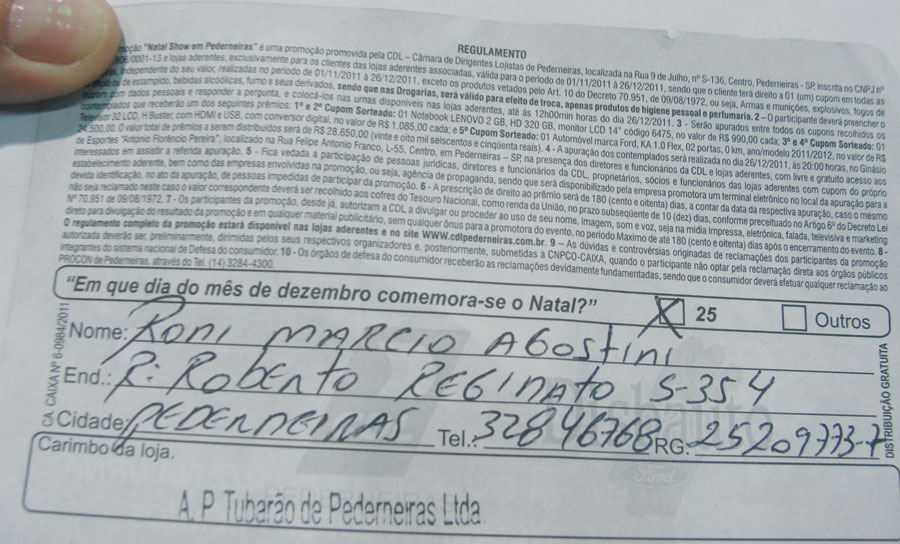 REGULAMENTO
"Natal Show em Pederneiras" é uma promoção promovida pela CDL – Câmara de Dirigentes Lojistas de Pederneiras, localizada na Rua 9 de Julho, nº S-136, Centro, Pederneiras - SP, inscrita no CNPJ nº
/0001-13 e lojas aderentes, exclusivamente para os clientes das lojas aderentes associadas, válida para o período de 01/11/2011 à 26/12/2011, sendo que o cliente terá direito a 01 (um) cupom em todas as
independente do seu valor, realizadas no período de 01/11/2011 à 26/12/2011, exceto os produtos vetados pelo Art. 10 do Decreto 70.951, de 09/08/1972, ou seja, Armas e munições, explosivos, fogos de
ou de estampido, bebidas alcoólicas, fumo e seus derivados, sendo que nas Drogarias, será válido para efeito de troca, apenas produtos de higiene pessoal e perfumaria. 2 – O participante deverá preencher o
cupom com dados pessoais e responder a pergunta, e colocá-los nas urnas disponíveis nas lojas aderentes, até às 12h00min horas do dia 26/12/2011. 3 - Serão apurados entre todos os cupons recolhidos os
contemplados que receberão um dos seguintes prêmios: 1º e 2º Cupom Sorteado: 01 Notebook LENOVO 2 GB, HD 320 GB, monitor LCD 14" código 6475, no valor de R$ 990,00 cada; 3º e 4º Cupom Sorteado: 01
Televisor 32 LCD, H Buster, com HDMI e USB, com conversor digital, no valor de R$ 1.085,00 cada; e 5º Cupom Sorteado: 01 Automóvel marca Ford, KA 1.0 Flex, 02 portas, 0 km, ano/modelo 2011/2012, no valor de R$
24.500,00. O valor total de prêmios a serem distribuídos será de R$ 28.650,00 (vinte e oito mil seiscentos e cinqüenta reais). 4 - A apuração dos contemplados será realizada no dia 26/12/2011, às 20:00 horas, no Ginásio
de Esportes "Antonio Florêncio Pereira", localizado na Rua Felipe Antonio Franco, L-55, Centro, em Pederneiras – SP, na presença dos diretores e funcionários da CDL e lojas aderentes, com livre e gratuito acesso aos
interessados em assistir a referida apuração. 5 - Fica vedada a participação de pessoas jurídicas, diretores e funcionários da CDL, proprietários, sócios e funcionários das lojas aderentes com cupom do próprio
estabelecimento aderente, bem como das empresas envolvidas na promoção, ou seja, agência de propaganda, sendo que será disponibilizado pela empresa promotora um terminal eletrônico no local da apuração para a
devida identificação, no ato da apuração, de pessoas impedidas de participar da promoção. 6 - A prescrição do direito ao prêmio será de 180 (cento e oitenta) dias, a contar da data da respectiva apuração, caso o mesmo
não seja reclamado neste caso o valor correspondente deverá ser recolhido aos cofres do Tesouro Nacional, como renda da União, no prazo subseqüente de 10 (dez) dias, conforme preceituado no Artigo 6º do Decreto Lei
Nº 70.951 de 09/08/1972. 7 - Os participantes da promoção, desde já, autorizam a CDL a divulgar ou proceder ao uso de seu nome, imagem, som e voz, seja na mídia impressa, eletrônica, falada, televisiva e marketing
direto para divulgação do resultado da promoção e em qualquer material publicitário, sem qualquer ônus para a promotora do evento, no período máximo de até 180 (cento e oitenta) dias após o encerramento do evento. 8 -
O regulamento completo da promoção estará disponível nas lojas aderentes e no site WWW.cdlpederneiras.com.br. 9 – As dúvidas e controvérsias originadas de reclamações dos participantes da promoção
autorizada deverão ser, preliminarmente, dirimidas pelos seus respectivos organizadores e, posteriormente, submetidas à CNPCO-CAIXA, quando o participante não optar pela reclamação direta aos órgãos públicos
integrantes do sistema nacional de Defesa do consumidor. 10 - Os órgãos de defesa do consumidor receberão as reclamações devidamente fundamentadas, sendo que o consumidor deverá efetuar qualquer reclamação ao
PROCON de Pederneiras, através do Tel. (14) 3284-4300.
"Em que dia do mês de dezembro comemora-se o Natal?" X 25 Outros
Nome: RONI MARCIO AGOSTINI
End.: R: ROBERTO REGINATO S-354
Cidade: PEDERNEIRAS Tel.: 32846768 RG: 25209773-7
CA CAIXA Nº 6-0984/2011
DISTRIBUIÇÃO GRATUITA
Carimbo da loja.
A. P Tubarão de Pederneiras Ltda.
Ford